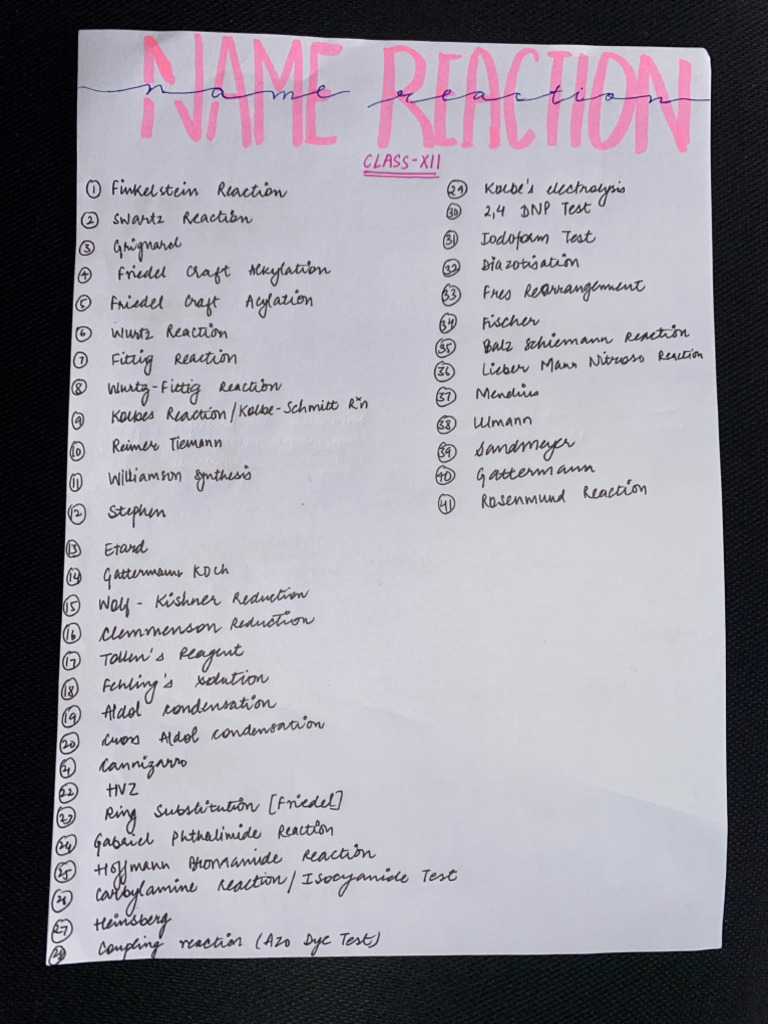 NAME REACTION
name reaction
CLASS-XII
① Finkelstein Reaction
② Swartz Reaction
③ Grignard
④ Friedel Craft Alkylation
⑤ Friedel Craft Acylation
⑥ Wurtz Reaction
⑦ Fittig Reaction
⑧ Wurtz-Fittig Reaction
⑨ Kolbes Reaction/Kolbe-Schmitt Rxn
⑩ Reimer Tiemann
⑪ Williamson Synthesis
⑫ Stephen
⑬ Etard
⑭ Gattermann Koch
⑮ Wolf-Kishner Reduction
⑯ Clemmenson Reduction
⑰ Tollen's Reagent
⑱ Fehling's solution
⑲ Aldol condensation
⑳ cross Aldol condensation
㉑ Cannizarro
㉒ HVZ
㉓ Ring Substitution [Friedel]
㉔ Gabriel Phthalimide Reaction
㉕ Hoffmann Bromamide Reaction
㉖ Carbylamine reaction/Isocyanide Test
㉗ Heinsberg
㉘ Coupling reaction (Azo Dye Test)
㉙ Kolbe's electrolysis
㉚ 2,4 DNP Test
㉛ Iodoform Test
㉜ Diazotisation
㉝ Fres Rearrangement
㉞ Fischer
㉟ Balz Schiemann Reaction
㊱ Lieber Mann Nitroso Reaction
㊲ Mendius
㊳ Ulmann
㊴ Sandmeyer
㊵ Gattermann
㊶ Rosenmund Reaction